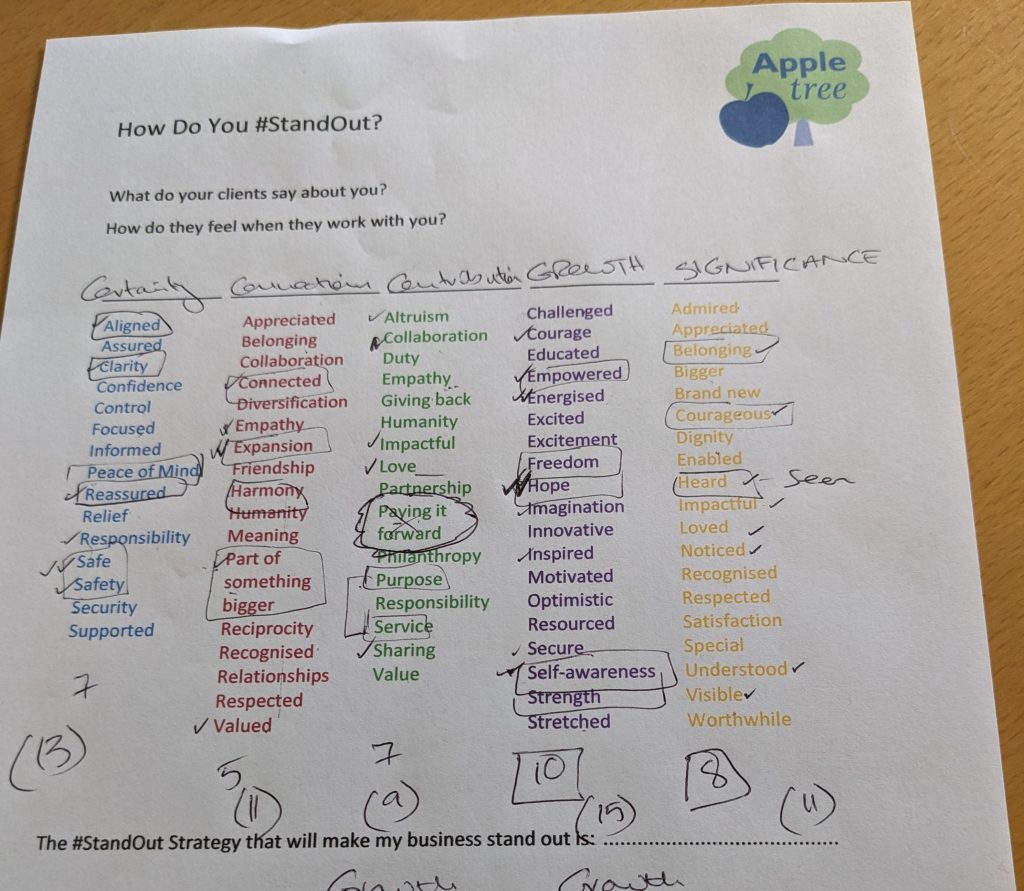 Apple
tree
How Do You #StandOut?
What do your clients say about you?
How do they feel when they work with you?
Certainty
Connection
Contribution
GROWTH
SIGNIFICANCE
Aligned
Assured
Clarity
Confidence
Control
Focused
Informed
Peace of Mind
Reassured
Relief
Responsibility
Safe
Safety
Security
Supported
7
(13)
Appreciated
Belonging
Collaboration
Connected
Diversification
Empathy
Expansion
Friendship
Harmony
Humanity
Meaning
Part of
something
bigger
Reciprocity
Recognised
Relationships
Respected
Valued
5
(11)
Altruism
Collaboration
Duty
Empathy
Giving back
Humanity
Impactful
Love
Partnership
Paying it
forward
Philanthropy
Purpose
Responsibility
Service
Sharing
Value
7
(9)
Challenged
Courage
Educated
Empowered
Energised
Excited
Excitement
Freedom
Hope
Imagination
Innovative
Inspired
Motivated
Optimistic
Resourced
Secure
Self-awareness
Strength
Stretched
10
(15)
Admired
Appreciated
Belonging
Bigger
Brand new
Courageous
Dignity
Enabled
Heard - Seen
Impactful
Loved
Noticed
Recognised
Respected
Satisfaction
Special
Understood
Visible
Worthwhile
8
(11)
The #StandOut Strategy that will make my business stand out is: ........................................
Growth Growth